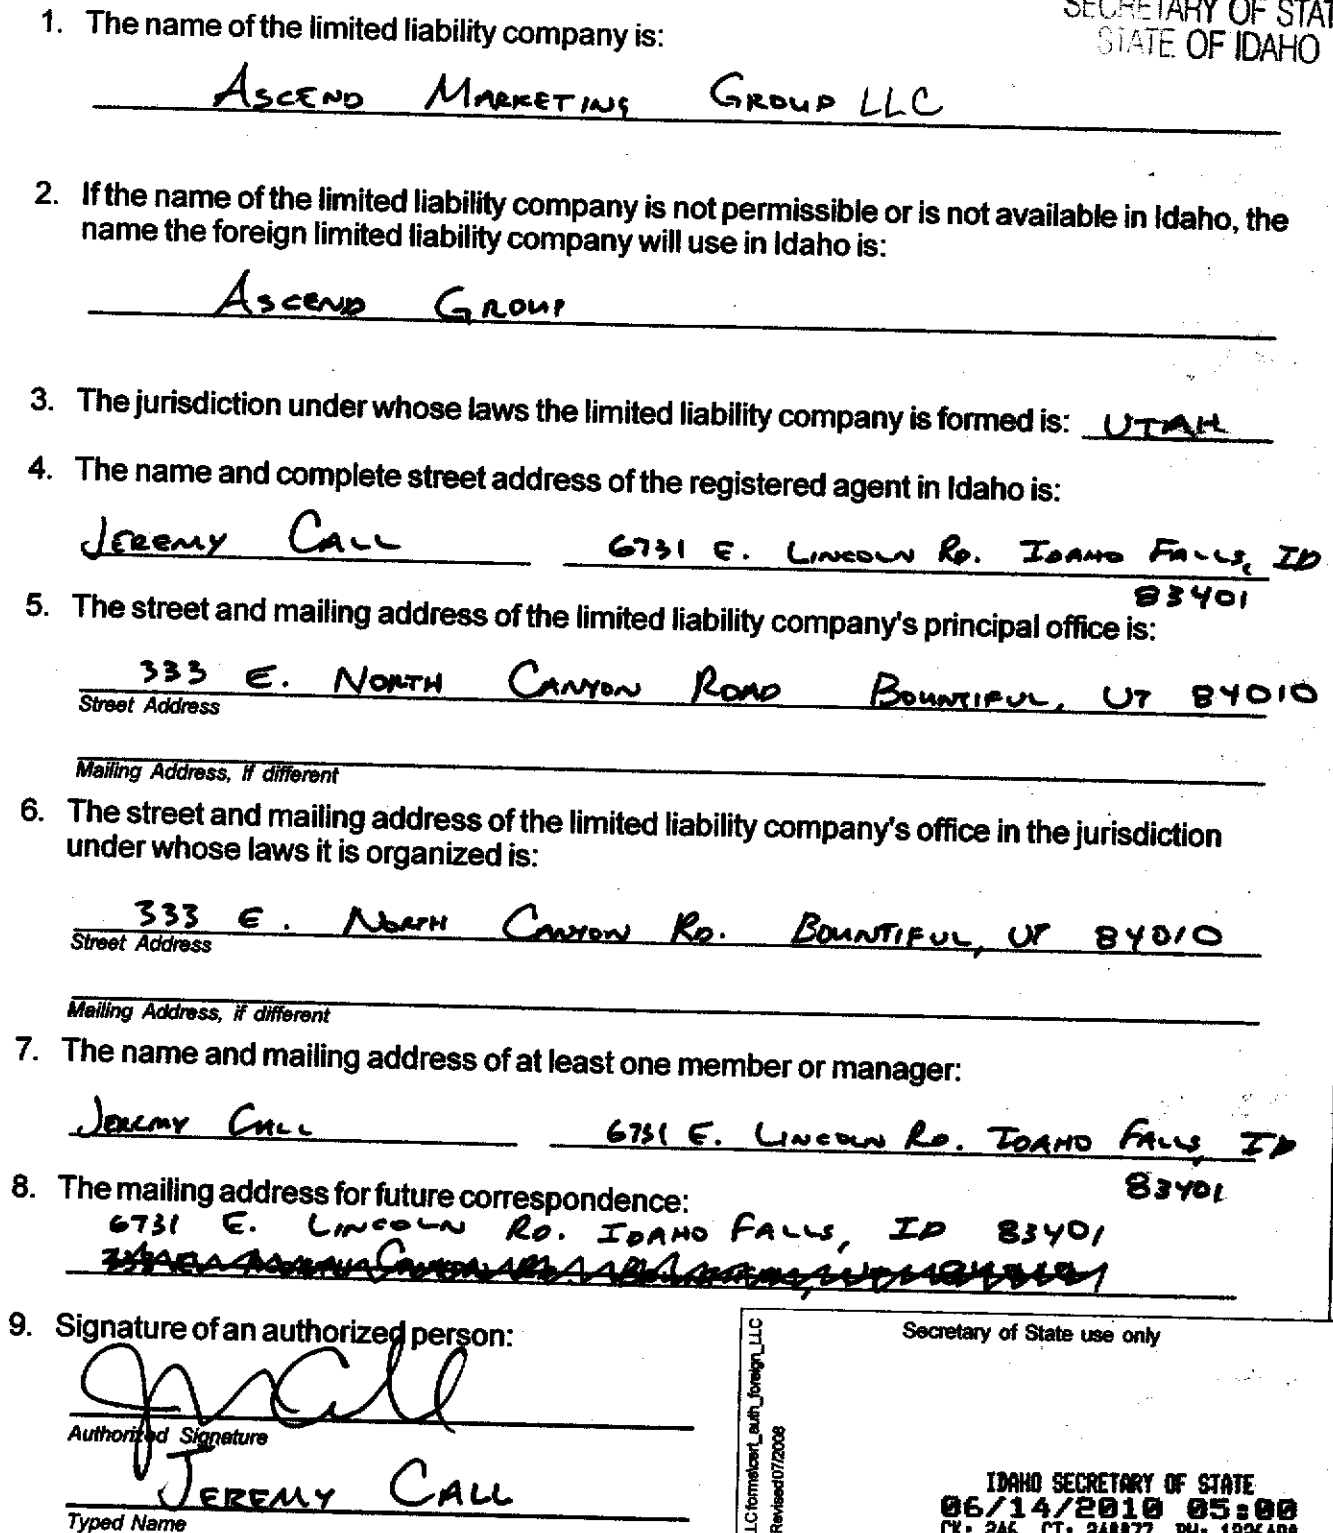 SECRETARY OF STAT
STATE OF IDAHO
1. The name of the limited liability company is:
ASCEND MARKETING GROUP LLC
2. If the name of the limited liability company is not permissible or is not available in Idaho, the
name the foreign limited liability company will use in Idaho is:
ASCEND GROUP
3. The jurisdiction under whose laws the limited liability company is formed is: UTAH
4. The name and complete street address of the registered agent in Idaho is:
JEREMY CALL 6731 E. LINCOLN RD. IDAHO FALLS, ID
83401
5. The street and mailing address of the limited liability company's principal office is:
333 E. NORTH CANYON ROAD BOUNTIFUL, UT 84010
Street Address
Mailing Address, if different
6. The street and mailing address of the limited liability company's office in the jurisdiction
under whose laws it is organized is:
333 E. NORTH CANYON RD. BOUNTIFUL, UT 84010
Street Address
Mailing Address, if different
7. The name and mailing address of at least one member or manager:
JEREMY CALL 6731 E. LINCOLN RD. IDAHO FALLS, ID
83401
8. The mailing address for future correspondence:
6731 E. LINCOLN RD. IDAHO FALLS, ID 83401
9. Signature of an authorized person:
Authorized Signature
JEREMY CALL
Typed Name
LC forms\cert_auth_foreign_LLC
Revised 07/2008
Secretary of State use only
IDAHO SECRETARY OF STATE
06/14/2010 05:00
CK: 246 CT: 248877 BH: